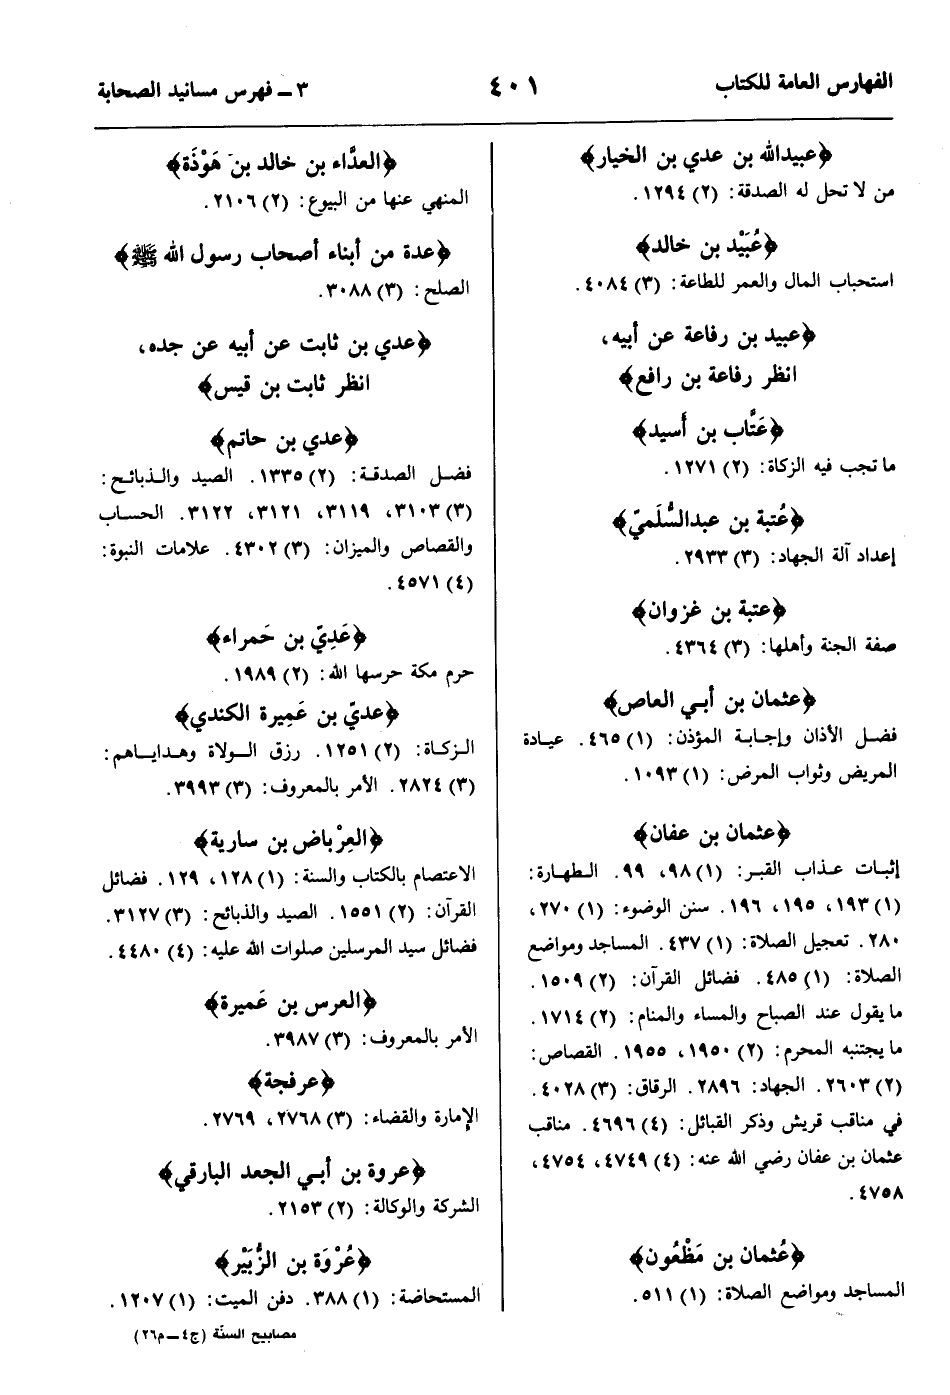 الفهارس العامة للكتاب
٤٠١
٣ ــ فهرس مسانيد الصحابة
﴿عبيدالله بن عدي بن الخيار﴾
من لا تحل له الصدقة: (٢) ١٢٩٤.
﴿عُبَيْد بن خالد﴾
استحباب المال والعمر للطاعة: (٣) ٤٠٨٤.
﴿عبيد بن رفاعة عن أبيه،
انظر رفاعة بن رافع﴾
﴿عَتَّاب بن أسيد﴾
ما تجب فيه الزكاة: (٢) ١٢٧١.
﴿عُتبة بن عبدالسُّلَميّ﴾
إعداد آلة الجهاد: (٣) ٢٩٣٣.
﴿عتبة بن غزوان﴾
صفة الجنة وأهلها: (٣) ٤٣٦٤.
﴿عثمان بن أبي العاص﴾
فضل الأذان وإجابة المؤذن: (١) ٤٦٥. عيادة
المريض وثواب المرض: (١) ١٠٩٣.
﴿عثمان بن عفان﴾
إثبات عذاب القبر: (١) ٩٨، ٩٩. الطهارة:
(١) ١٩٣، ١٩٥، ١٩٦. سنن الوضوء: (١) ٢٧٠،
٢٨٠. تعجيل الصلاة: (١) ٤٣٧. المساجد ومواضع
الصلاة: (١) ٤٨٥. فضائل القرآن: (٢) ١٥٠٩.
ما يقول عند الصباح والمساء والمنام: (٢) ١٧١٤.
ما يجتنبه المحرم: (٢) ١٩٥٠، ١٩٥٥. القصاص:
(٢) ٢٦٠٣. الجهاد: ٢٨٩٦. الرقاق: (٣) ٤٠٢٨.
في مناقب قريش وذكر القبائل: (٤) ٤٦٩٦. مناقب
عثمان بن عفان رضي الله عنه: (٤) ٤٧٤٩، ٤٧٥٤،
٤٧٥٨.
﴿عُثمان بن مَظْعُون﴾
المساجد ومواضع الصلاة: (١) ٥١١.
﴿العدَّاء بن خالد بن هَوْذَة﴾
المنهي عنها من البيوع: (٢) ٢١٠٦.
﴿عدة من أبناء أصحاب رسول الله ﷺ﴾
الصلح: (٣) ٣٠٨٨.
﴿عدي بن ثابت عن أبيه عن جده،
انظر ثابت بن قيس﴾
﴿عدي بن حاتم﴾
فضل الصدقة: (٢) ١٣٣٥. الصيد والذبائح:
(٣) ٣١٠٣، ٣١١٩، ٣١٢١، ٣١٢٢. الحساب
والقصاص والميزان: (٣) ٤٣٠٢. علامات النبوة:
(٤) ٤٥٧١.
﴿عَدِيّ بن حَمراء﴾
حرم مكة حرسها الله: (٢) ١٩٨٩.
﴿عديّ بن عَمِيرة الكندي﴾
الزكاة: (٢) ١٢٥١. رزق الولاة وهداياهم:
(٣) ٢٨٢٤. الأمر بالمعروف: (٣) ٣٩٩٣.
﴿العِرْباض بن سارية﴾
الاعتصام بالكتاب والسنة: (١) ١٢٨، ١٢٩. فضائل
القرآن: (٢) ١٥٥١. الصيد والذبائح: (٣) ٣١٢٧.
فضائل سيد المرسلين صلوات الله عليه: (٤) ٤٤٨٠.
﴿العرس بن عَميرة﴾
الأمر بالمعروف: (٣) ٣٩٨٧.
﴿عرفجة﴾
الإمارة والقضاء: (٣) ٢٧٦٨، ٢٧٦٩.
﴿عروة بن أبي الجعد البارقي﴾
الشركة والوكالة: (٢) ٢١٥٣.
﴿عُرْوَة بن الزُّبَيْر﴾
المستحاضة: (١) ٣٨٨. دفن الميت: (١) ١٢٠٧.
مصابيح السنّة (ج٤ ــ م٢٦)